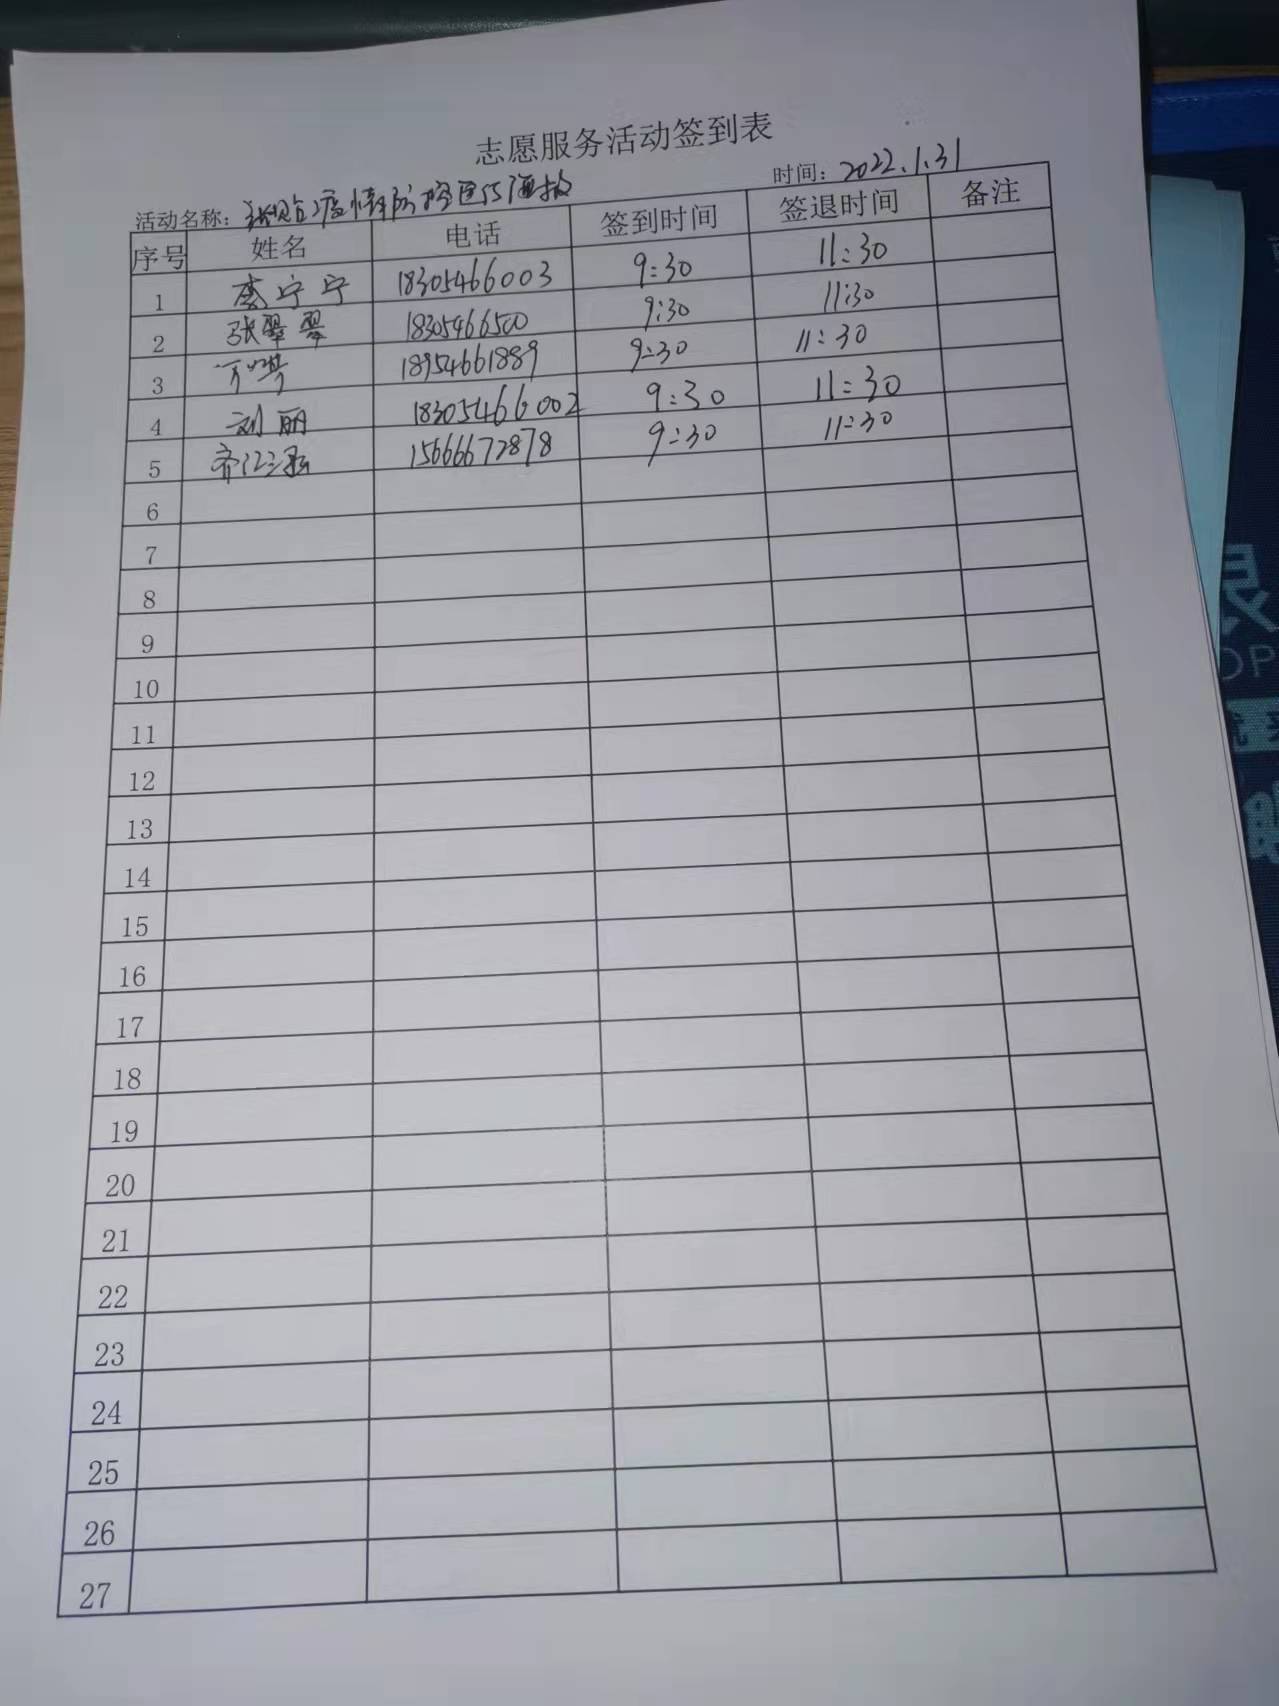 志愿服务活动签到表
活动名称: 张贴疫情防控宣传海报 时间: 2022.1.31
序号 姓名 电话 签到时间 签退时间 备注
1 李宁宁 18305466003 9:30 11:30
2 张翠翠 1830546650 9:30 11:30
3 18954661889 9:30 11:30
4 刘丽 18305466002 9:30 11:30
5 15666672878 9:30 11:30
6
7
8
9
10
11
12
13
14
15
16
17
18
19
20
21
22
23
24
25
26
27
OP